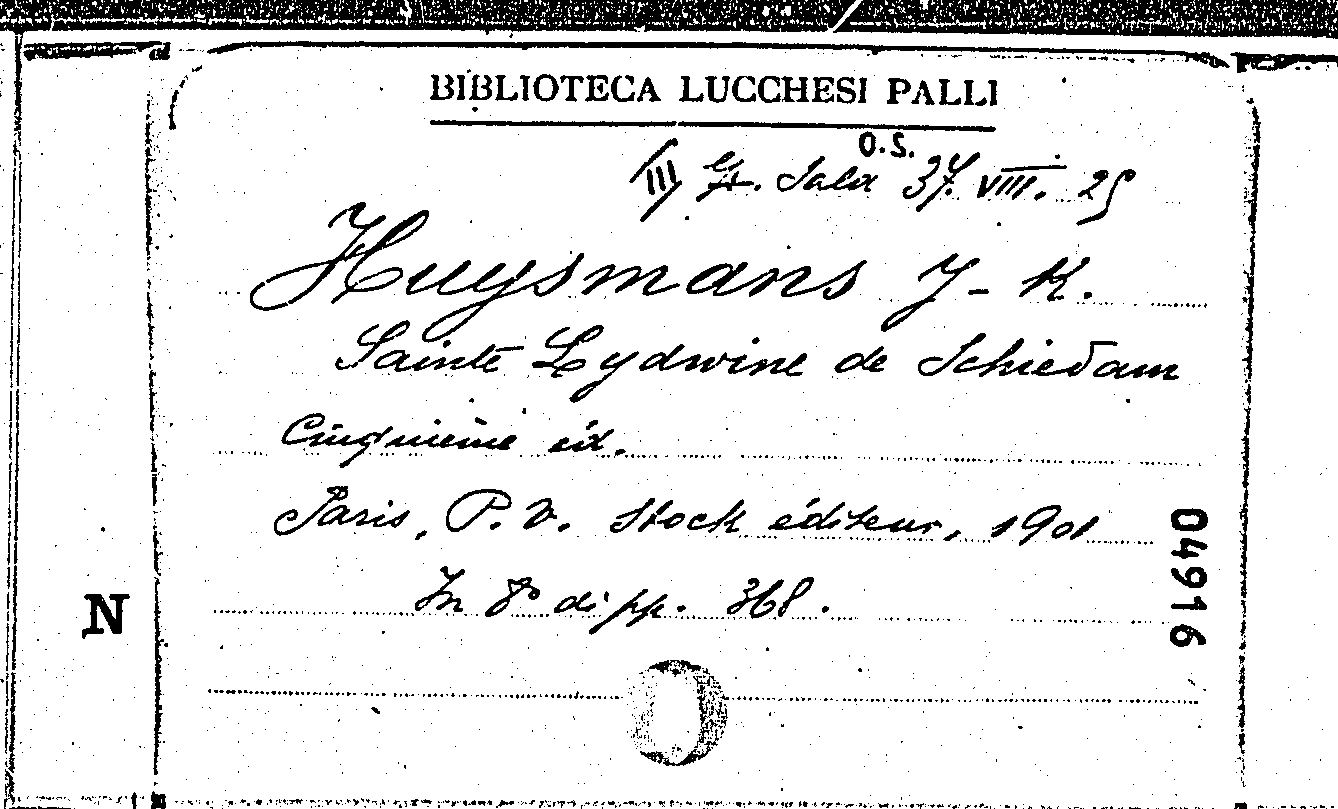 BIBLIOTECA LUCCHESI PALLI
O.S.
III Sala 37. VIII. 25
Huysmans J-K.
Sainte Lydwine de Schiedam
Cinquième éd.
Paris, P. V. Stock éditeur, 1901
In 8° di pp. 368.
04916
N